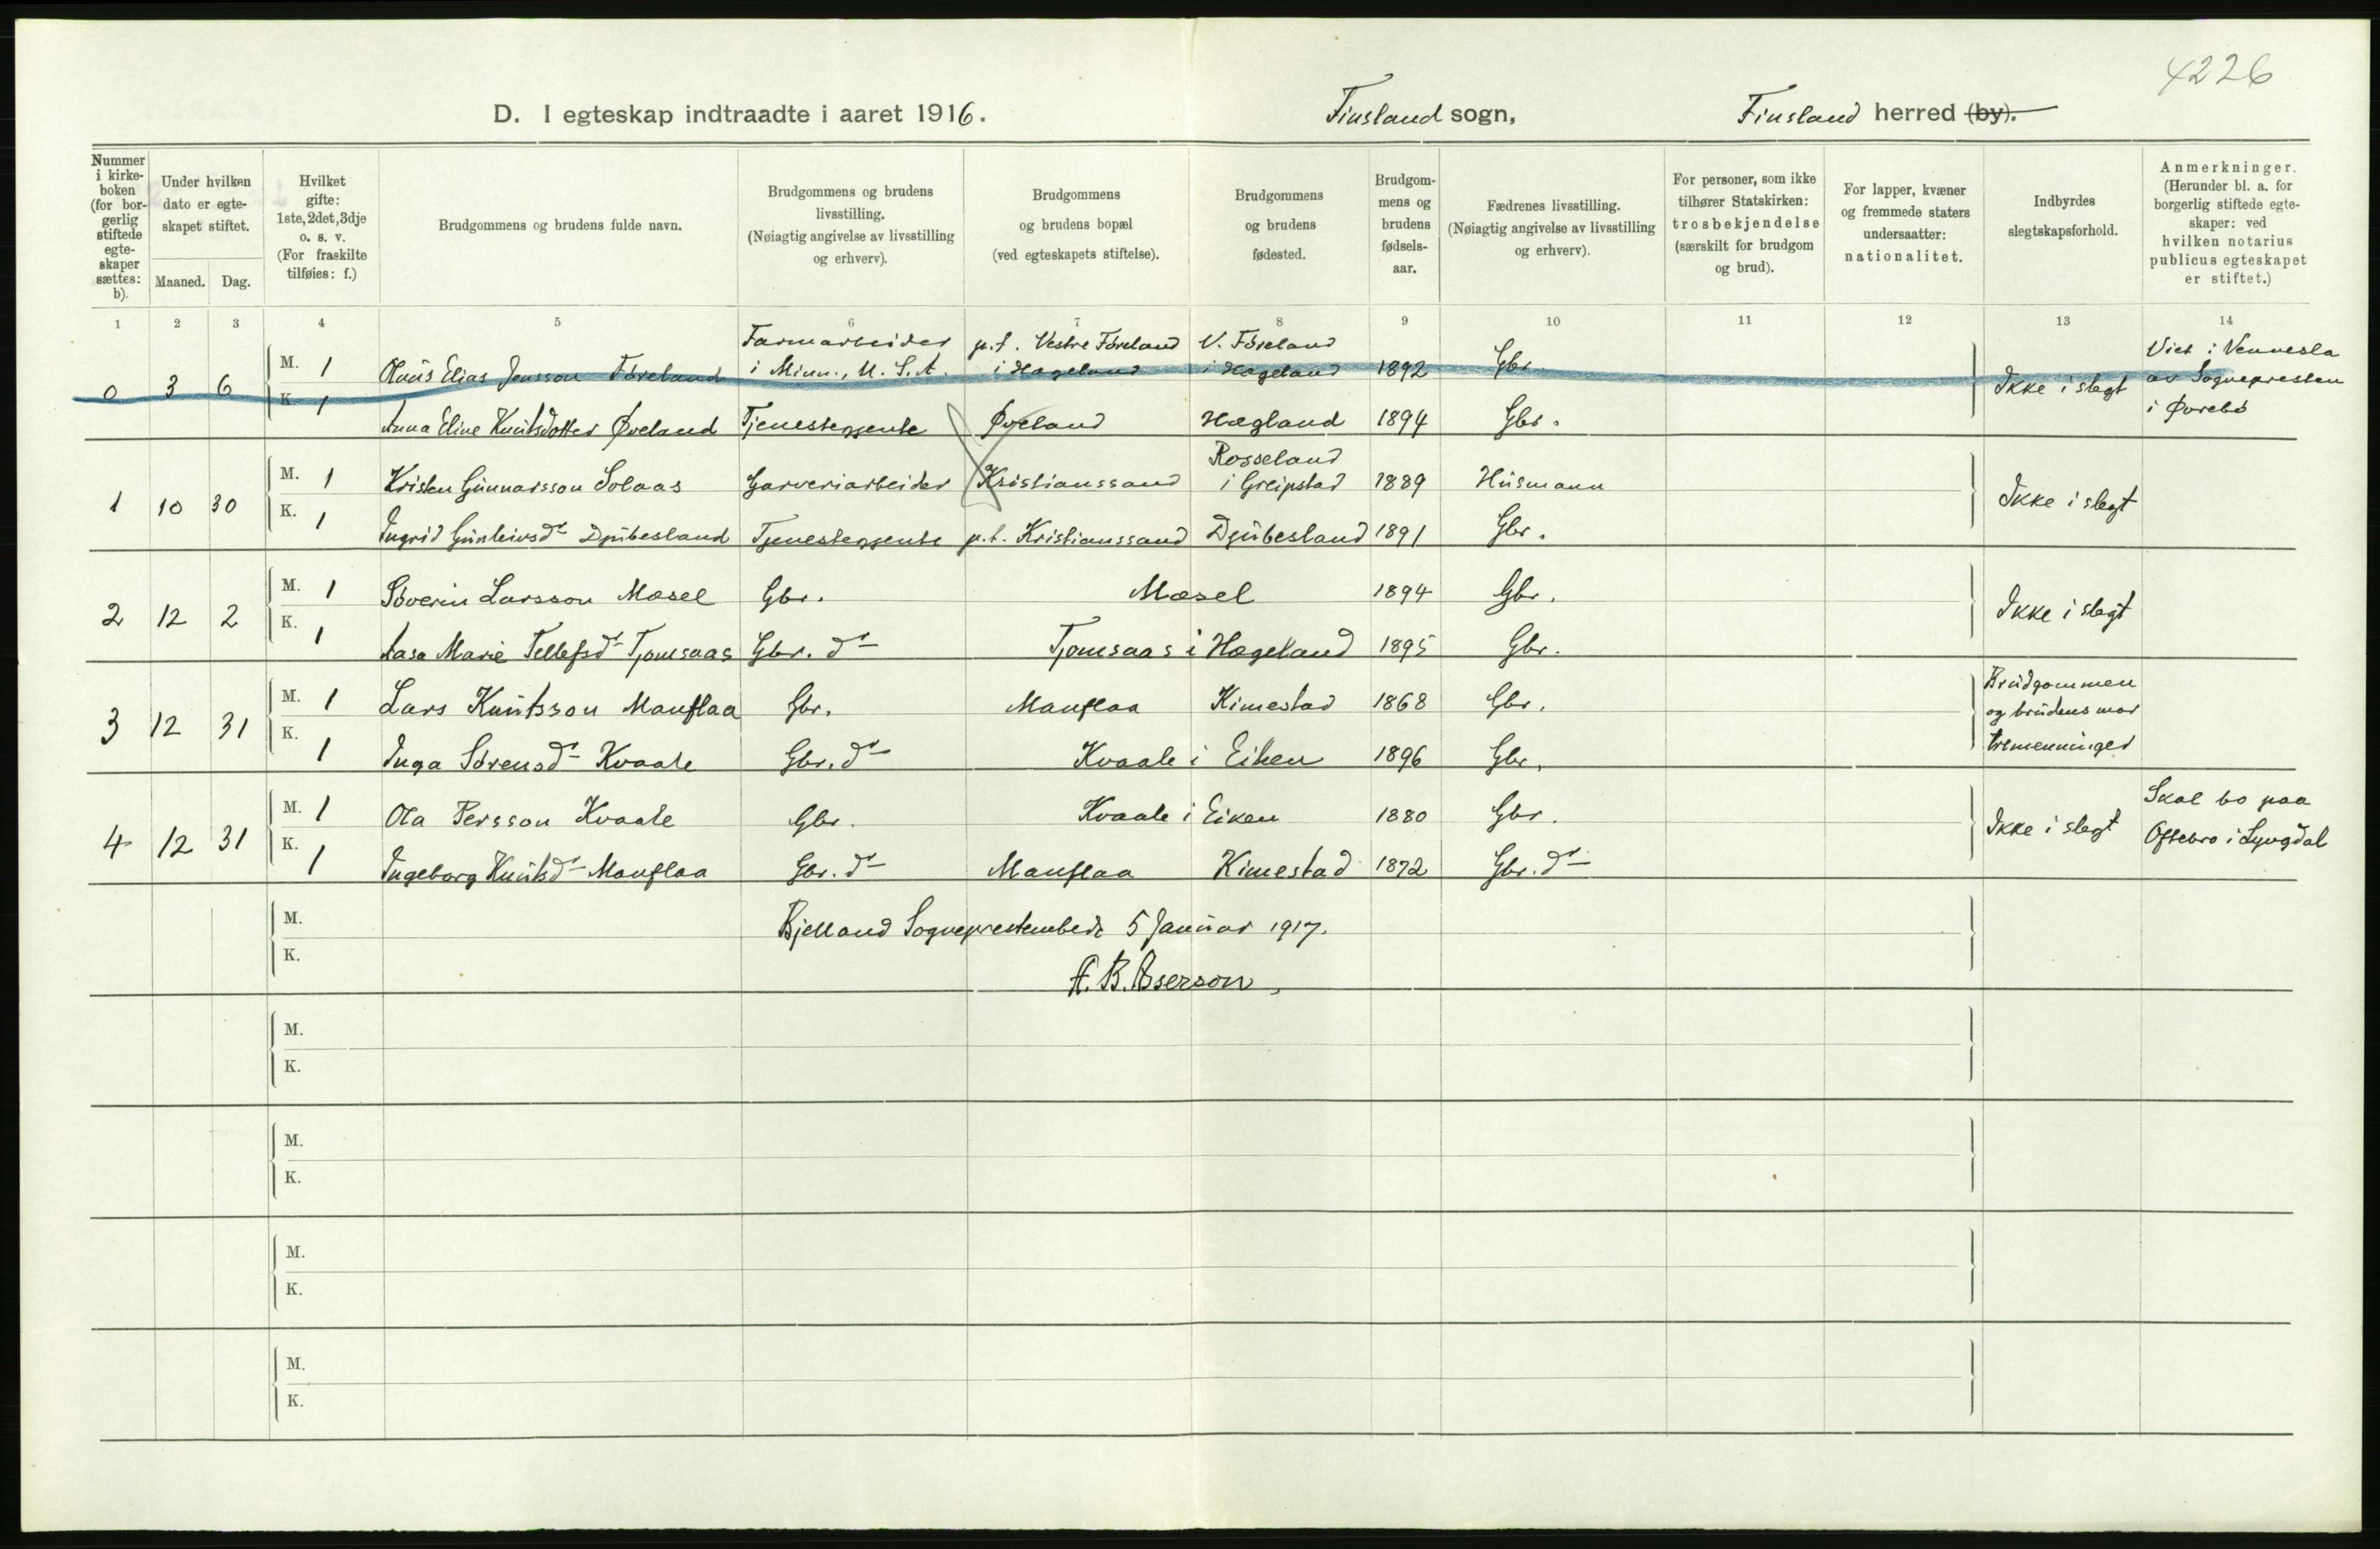 4226
D. I egteskap indtraadte i aaret 1916. Finsland sogn, Finsland herred (by).
Nummer i kirke-boken (for bor-gerlig stiftede egte-skaper sættes: b).
Under hvilken dato er egte-skapet stiftet.
Maaned. Dag.
Hvilket gifte: 1ste, 2det, 3dje o. s. v. (For fraskilte tilføies: f.)
Brudgommens og brudens fulde navn.
Brudgommens og brudens livsstilling. (Nøiagtig angivelse av livsstilling og erhverv).
Brudgommens og brudens bopæl (ved egteskapets stiftelse).
Brudgommens og brudens fødested.
Brudgom-mens og brudens fødsels-aar.
Fædrenes livsstilling. (Nøiagtig angivelse av livsstilling og erhverv).
For personer, som ikke tilhører Statskirken: trosbekjendelse (særskilt for brudgom og brud).
For lapper, kvæner og fremmede staters undersaatter: nationalitet.
Indbyrdes slegtskapsforhold.
Anmerkninger. (Herunder bl. a. for borgerlig stiftede egte-skaper: ved hvilken notarius publicus egteskapet er stiftet.)
1 2 3 4 5 6 7 8 9 10 11 12 13 14
0 3 6 M. 1 Olaus Elias Jensson Föreland Farmarbeider i Minn., U.S.A. p.t. Vestre Föreland i Hægeland V. Föreland i Hægeland 1892 Gbr. Ikke i slegt Viet i Vennesla av Sognepresten i Øvrebö
K. 1 Anna Eline Knutsdotter Øveland Tjenestegjente Øveland Hægland 1894 Gbr.
1 10 30 M. 1 Kristen Gunnarsson Solaas Garveriarbeider Kristianssand Rosseland i Greipstad 1889 Husmann Ikke i slegt
K. 1 Ingrid Gunleivsdr Djubesland Tjenestegjente p.t. Kristianssand Djubesland 1891 Gbr.
2 12 2 M. 1 Söverin Larsson Mæsel Gbr. Mæsel 1894 Gbr. Ikke i slegt
K. 1 Aasa Marie Tellefsdr Tjomsaas Gbr. dr Tjomsaas i Hægeland 1895 Gbr.
3 12 31 M. 1 Lars Knutsson Manflaa Gbr. Manflaa Kimestad 1868 Gbr. Brudgommen og brudens mor tremenninger
K. 1 Inga Sörensdr Kvaale Gbr. dr Kvaale i Eiken 1896 Gbr.
4 12 31 M. 1 Ola Persson Kvaale Gbr. Kvaale i Eiken 1880 Gbr. Ikke i slegt Skal bo paa Oftebro i Lyngdal
K. 1 Ingeborg Knutsdr Manflaa Gbr. dr Manflaa Kimestad 1872 Gbr. dr
M.
Bjelland Sogneprestembede 5 Januar 1917.
K.
A. B. Aserson.
M.
K.
M.
K.
M.
K.
M.
K.